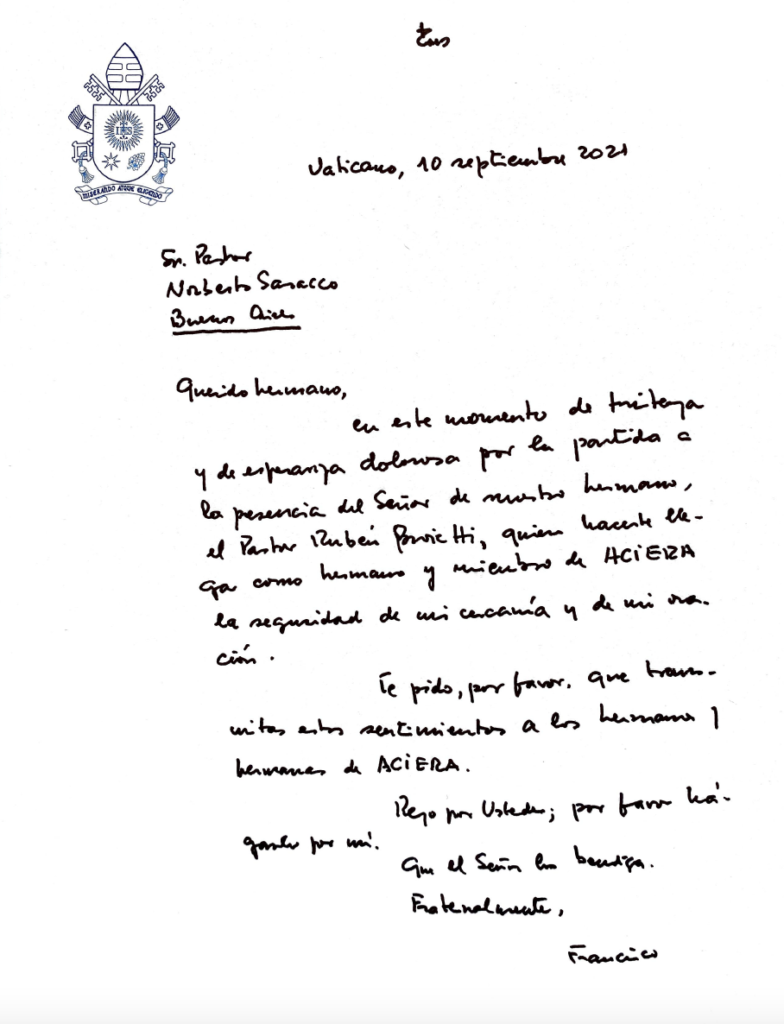 MISERANDO ATQUE ELIGENDO
IHS
Vaticano, 10 septiembre 2021
Sr. Pastor
Norberto Saracco
Buenos Aires
Querido hermano,
en este momento de tristeza
y de esperanza dolorosa por la partida a
la presencia del Señor de nuestro hermano,
el Pastor Rubén Proietti, quiero hacerte lle-
gar como hermano y miembro de ACIERA
la seguridad de mi cercanía y de mi ora-
ción.
Te pido, por favor, que trans-
mitas estos sentimientos a los hermanos y
hermanas de ACIERA.
Rezo por Ustedes; por favor há-
ganlo por mí.
Que el Señor los bendiga.
Fraternalmente,
Francisco